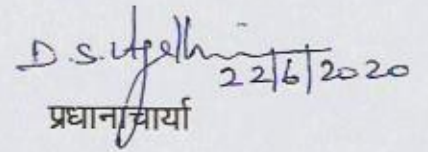 D. S.
22/6/2020
प्रधानाचार्या